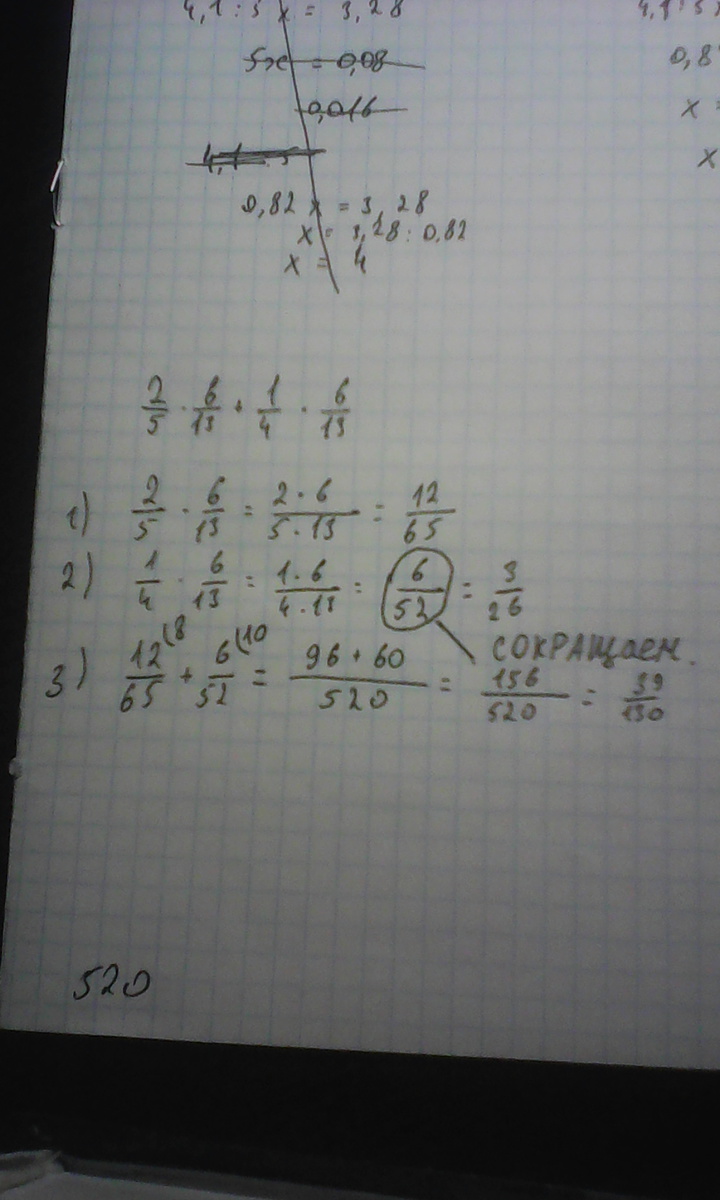 4,1 : 5 x = 3,28
5x = 0,08
0,016
4,1 : 5
0,82 x = 3,28
x = 3,28 : 0,82
x = 4
4,1 : 5
0,8
x =
x
2/5 · 6/13 + 1/4 · 6/13
1) 2/5 · 6/13 = 2·6/5·13 = 12/65
2) 1/4 · 6/13 = 1·6/4·13 = 6/52 = 3/26
СОКРАЩАЕМ.
3) 12/65 (8 + 6/52 (10 = 96 + 60/520 = 156/520 = 39/130
520